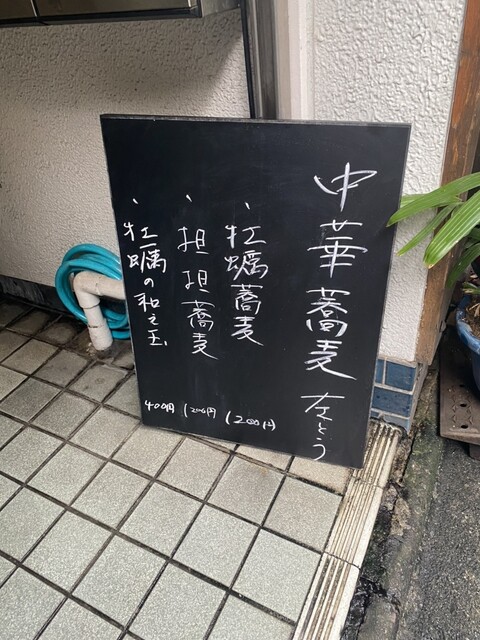 中華蕎麦 さとう
、牡蠣蕎麦 1200円
、担担蕎麦 1200円
、牡蠣の和え玉 400円